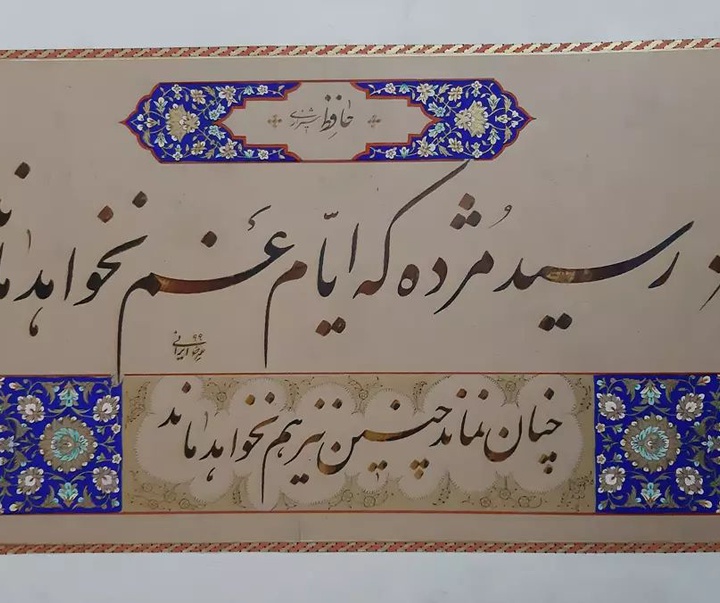 حافظ شیرازی
رسید مُژده که ایّام غم نخواهد ماند
۹۹
چنان نماند چنین نیز هم نخواهد ماند